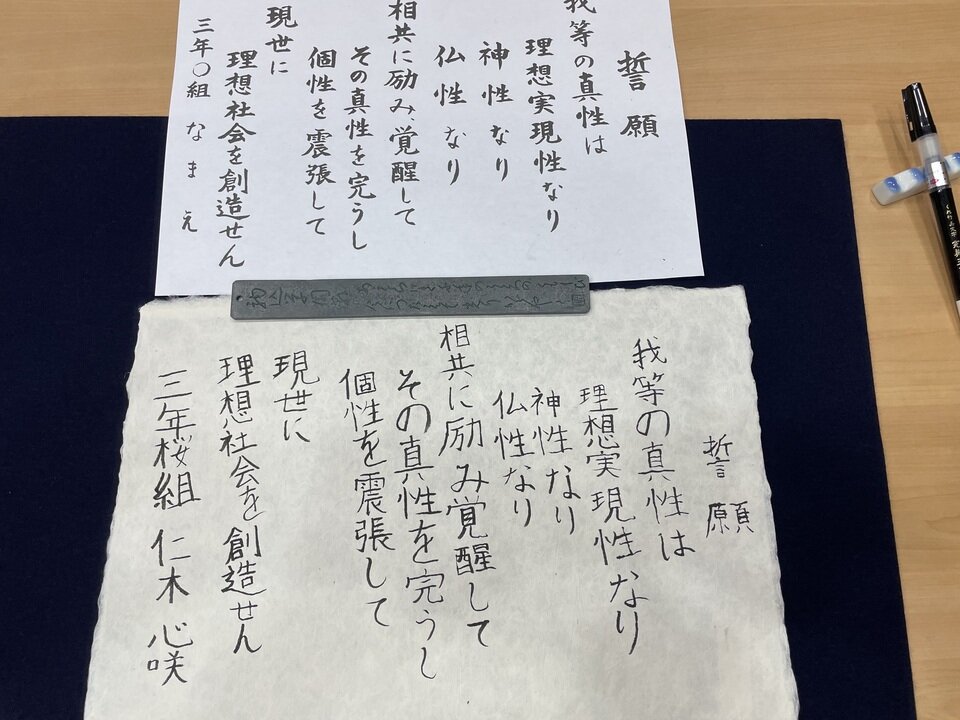 誓願
我等の真性は
理想実現性なり
神性なり
仏性なり
相共に励み、覚醒して
その真性を完うし
個性を震張して
現世に
理想社会を創造せん
三年〇組 なまえ
誓願
我等の真性は
理想実現性なり
神性なり
仏性なり
相共に励み覚醒して
その真性を完うし
個性を震張して
現世に
理想社会を創造せん
三年桜組 仁木 心咲